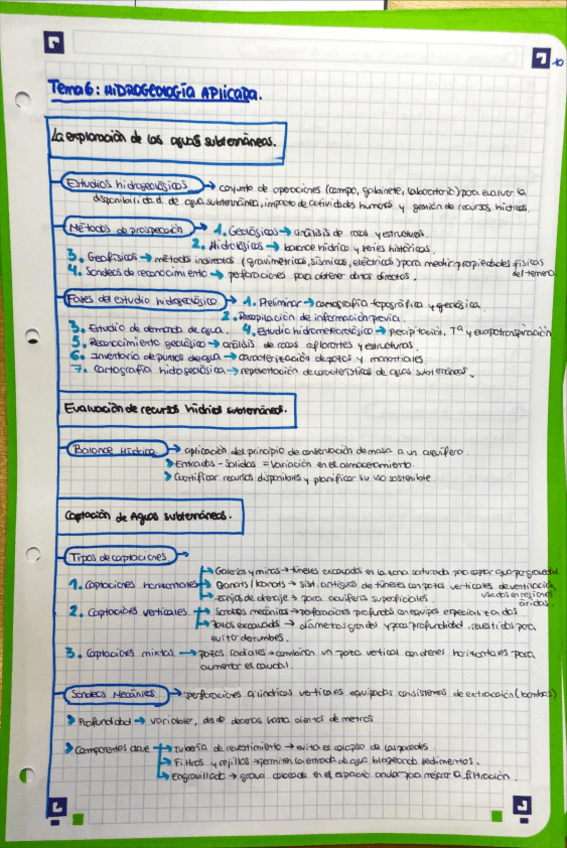 10
Tema 6: HIDROGEOLOGÍA APLICADA.
La exploración de las aguas subterráneas.
Estudios hidrogeológicos → conjunto de operaciones (campo, gabinete, laboratorio) para evaluar la
disponibilidad de agua subterránea, impacto de actividades humanas y gestión de recursos hídricos.
Métodos de prospección → 1. Geológicos → análisis de rocas y estructuras.
2. Hidrológicos → balance hídrico y series históricas.
3. Geofísicos → métodos indirectos (gravimétricos, sísmicos, eléctricos) para medir propiedades físicas
del terreno
4. Sondeos de reconocimiento → perforaciones para obtener datos directos.
Fases del estudio hidrogeológico → 1. Preliminar → cartografía topográfica y geológica.
2. Recopilación de información previa.
3. Estudio de demanda de agua. 4. Estudio hidrometeorológico → precipitación, Tª y evapotranspiración
5. Reconocimiento geológico → análisis de rocas aflorantes y estructuras.
6. Inventario de puntos de agua → caracterización de pozos y manantiales
7. Cartografía hidrogeológica → representación de características de aguas subterráneas.
Evaluación de recursos hídricos subterráneos.
Balance Hídrico → aplicación del principio de conservación de masa a un acuífero.
Entradas - Salidas = Variación en el almacenamiento.
Cuantificar recursos disponibles y planificar su uso sostenible.
Captación de Aguas subterráneas.
Tipos de captaciones
1. Captaciones horizontales → Galerías y minas → túneles excavados en la zona saturada para captar agua por gravedad
Qanats / kanats → sist. antiguos de túneles con pozos verticales de ventilación,
usados en regiones áridas.
zanjas de drenaje → para acuíferos superficiales
2. Captaciones verticales → Sondeos mecánicos → perforaciones profundas con equipos especializados
Pozos excavados → diámetros grandes y poca profundidad. revestidos para
evitar derrumbes.
3. Captaciones mixtas → pozos radiales → combinan un pozo vertical con drenes horizontales para
aumentar el caudal.
Sondeos Mecánicos → perforaciones cilíndricas verticales equipadas con sistemas de extracción (bombas)
Profundidad → variable, desde decenas hasta cientos de metros
Componentes clave → tubería de revestimiento → evita el colapso de las paredes.
Filtros y rejillas → permiten la entrada de agua bloqueando sedimentos.
Engravillado → grava colocada en el espacio anular para mejorar la filtración.